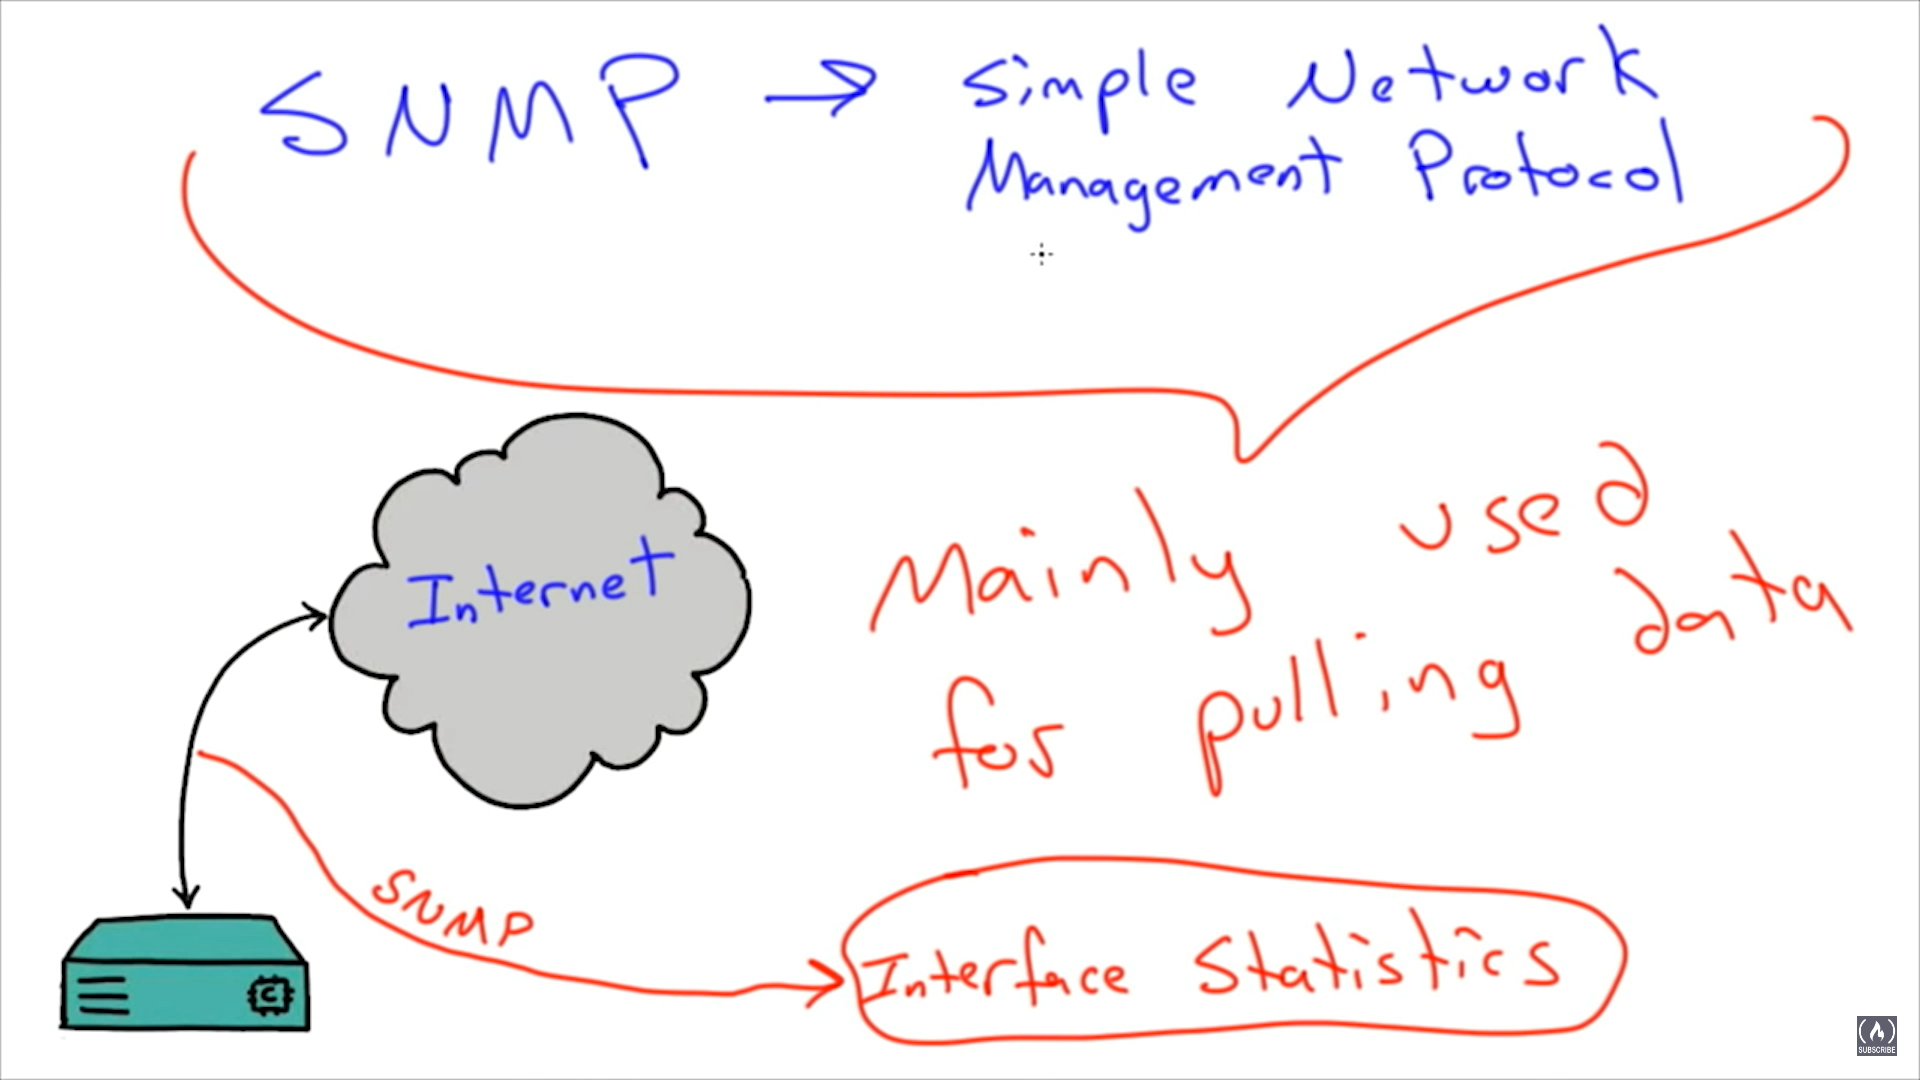 SNMP → Simple Network
Management Protocol
Internet
Mainly used
for pulling data
SNMP
Interface Statistics
C
SUBSCRIBE